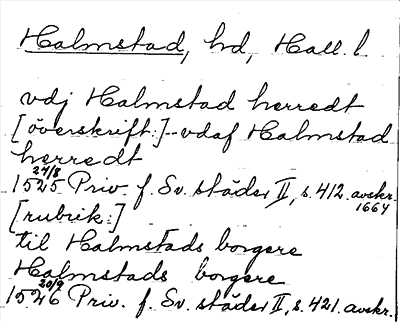 Halmstad, hd, Hall. l.
vdj Halmstad herredt
[överskrift:] -- vdaf Halmstad
herredt
1525 24/8 Priv. f. Sv. städer II, s. 412. avskr. 1664
[rubrik:]
til Halmstads borgere
Halmstads borgere
1526 20/9 Priv. f. Sv. städer II, s. 421. avskr.